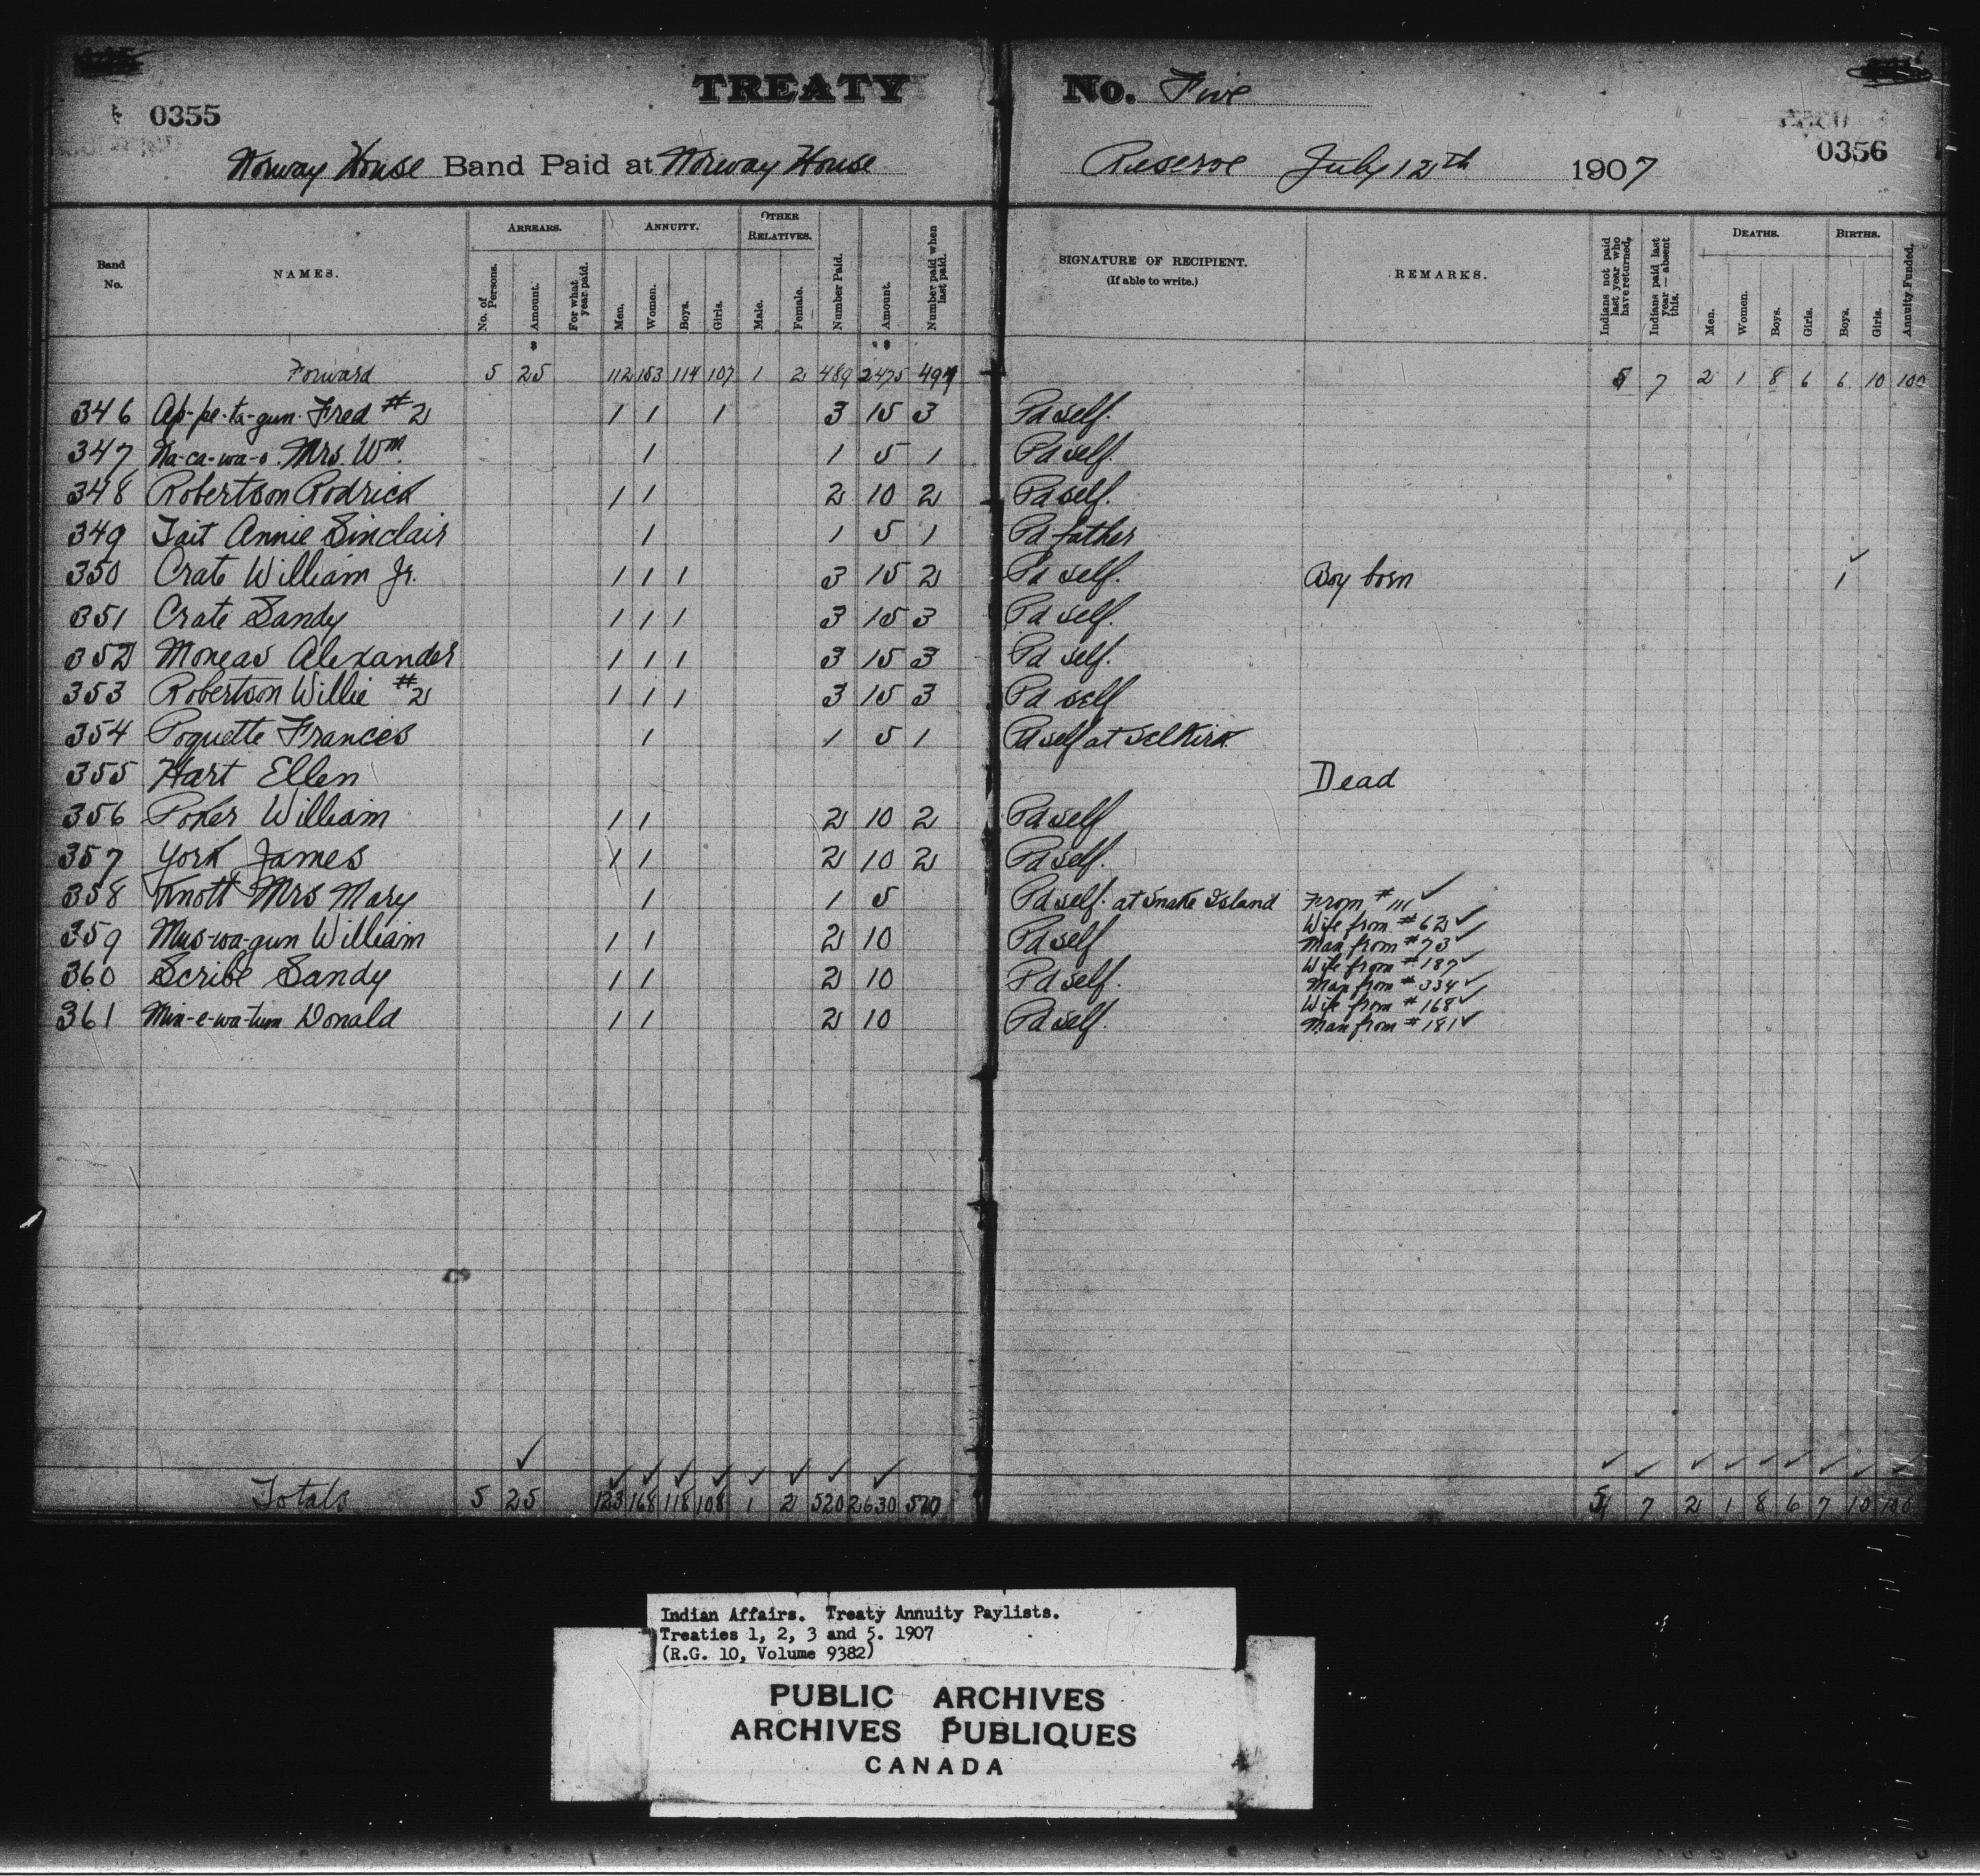 TREATY No. Five
0355
0356
Norway House Band Paid at Norway House Reserve July 12th 1907
Band No. NAMES. ARREARS. No. of Persons. Amount. For what year paid. ANNUITY. Men. Women. Boys. Girls. OTHER RELATIVES. Male. Female. Number Paid. Amount. Number paid when last paid. SIGNATURE OF RECIPIENT. (If able to write.) REMARKS. Indians not paid last year who have returned. Indians paid last year—absent this. DEATHS. Men. Women. Boys. Girls. BIRTHS. Boys. Girls. Annuity Funded.
$ $
Forward 5 25 112 153 114 107 1 2 489 2475 491 5 7 2 1 8 6 6 10 100
346 Ap-pe-ta-gun Fred #2 1 1 1 3 15 3 Pd self.
347 Na-ca-wa-o. Mrs. Wm. 1 1 5 1 Pd self.
348 Robertson Rodrick 1 1 2 10 2 Pd self.
349 Tait Annie Sinclair 1 1 5 1 Pd father
350 Crate William Jr. 1 1 1 3 15 2 Pd self. Boy born 1
351 Crate Sandy 1 1 1 3 15 3 Pd self.
352 Moneas Alexander 1 1 1 3 15 3 Pd self.
353 Robertson Willie #2 1 1 1 3 15 3 Pd self
354 Poquette Frances 1 1 5 1 Pd self at Selkirk.
355 Hart Ellen Dead
356 Poker William 1 1 2 10 2 Pd self
357 York James 1 1 2 10 2 Pd self.
358 Knott Mrs Mary 1 1 5 Pd self. at Snake Island From #111
359 Mus-wa-gun William 1 1 2 10 Pd self Wife from #62
Man from #73
360 Scribe Sandy 1 1 2 10 Pd self. Wife from #187
Man from #334
361 Min-e-wa-tum Donald 1 1 2 10 Pd self. Wife from #168
Man from #181
Totals 5 25 123 168 118 108 1 2 520 2630 7 2 1 8 6 7 10 100
Indian Affairs. Treaty Annuity Paylists.
Treaties 1, 2, 3 and 5. 1907
(R.G. 10, Volume 9382)
PUBLIC ARCHIVES
ARCHIVES PUBLIQUES
CANADA